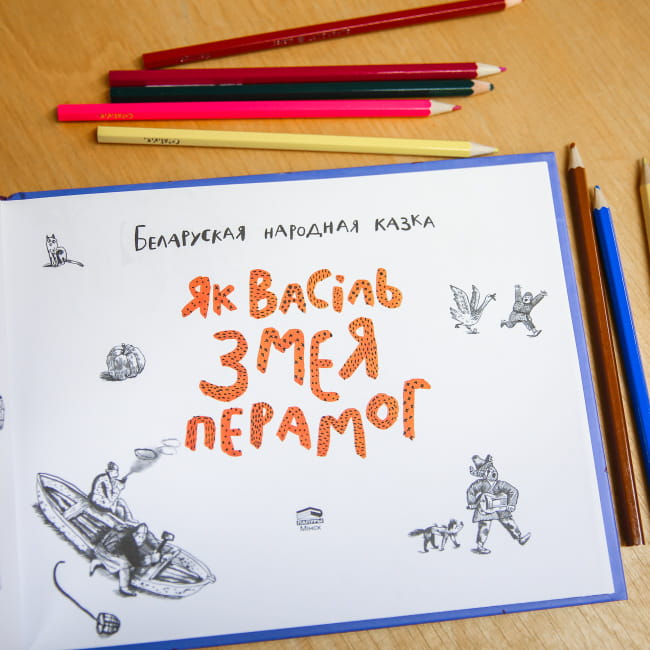 Беларуская народная казка
Як Васіль
Змея
перамог
Папуры
Мінск